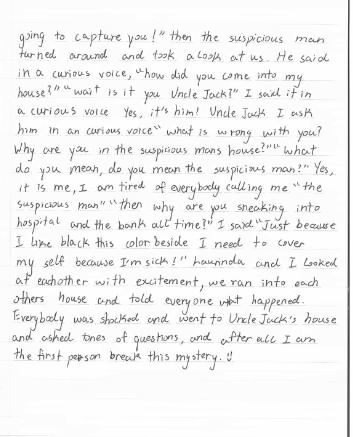 going to capture you!" then the suspicious man
turned around and took a look at us. He said
in a curious voice, "how did you come into my
house?" "wait is it you Uncle Jack?" I said it in
a curious voice Yes, it's him! Uncle Jack I ask
him in an curious voice "what is wrong with you?
Why are you in the suspicious mans house?" "what
do you mean, do you mean the suspicious man?" Yes,
it is me, I am tired of everybody calling me "the
suspicious man" "then why are you sneaking into
hospital and the bank all time?" I said "Just because
I like black this color beside I need to cover
my self because I'm sick!" Laurinda and I looked
at eachother with excitement, we ran into each
others house and told everyone what happened.
Everybody was shocked and went to Uncle Jack's house
and ashed tones of questions, and after all I am
the first person break this mystery. !!